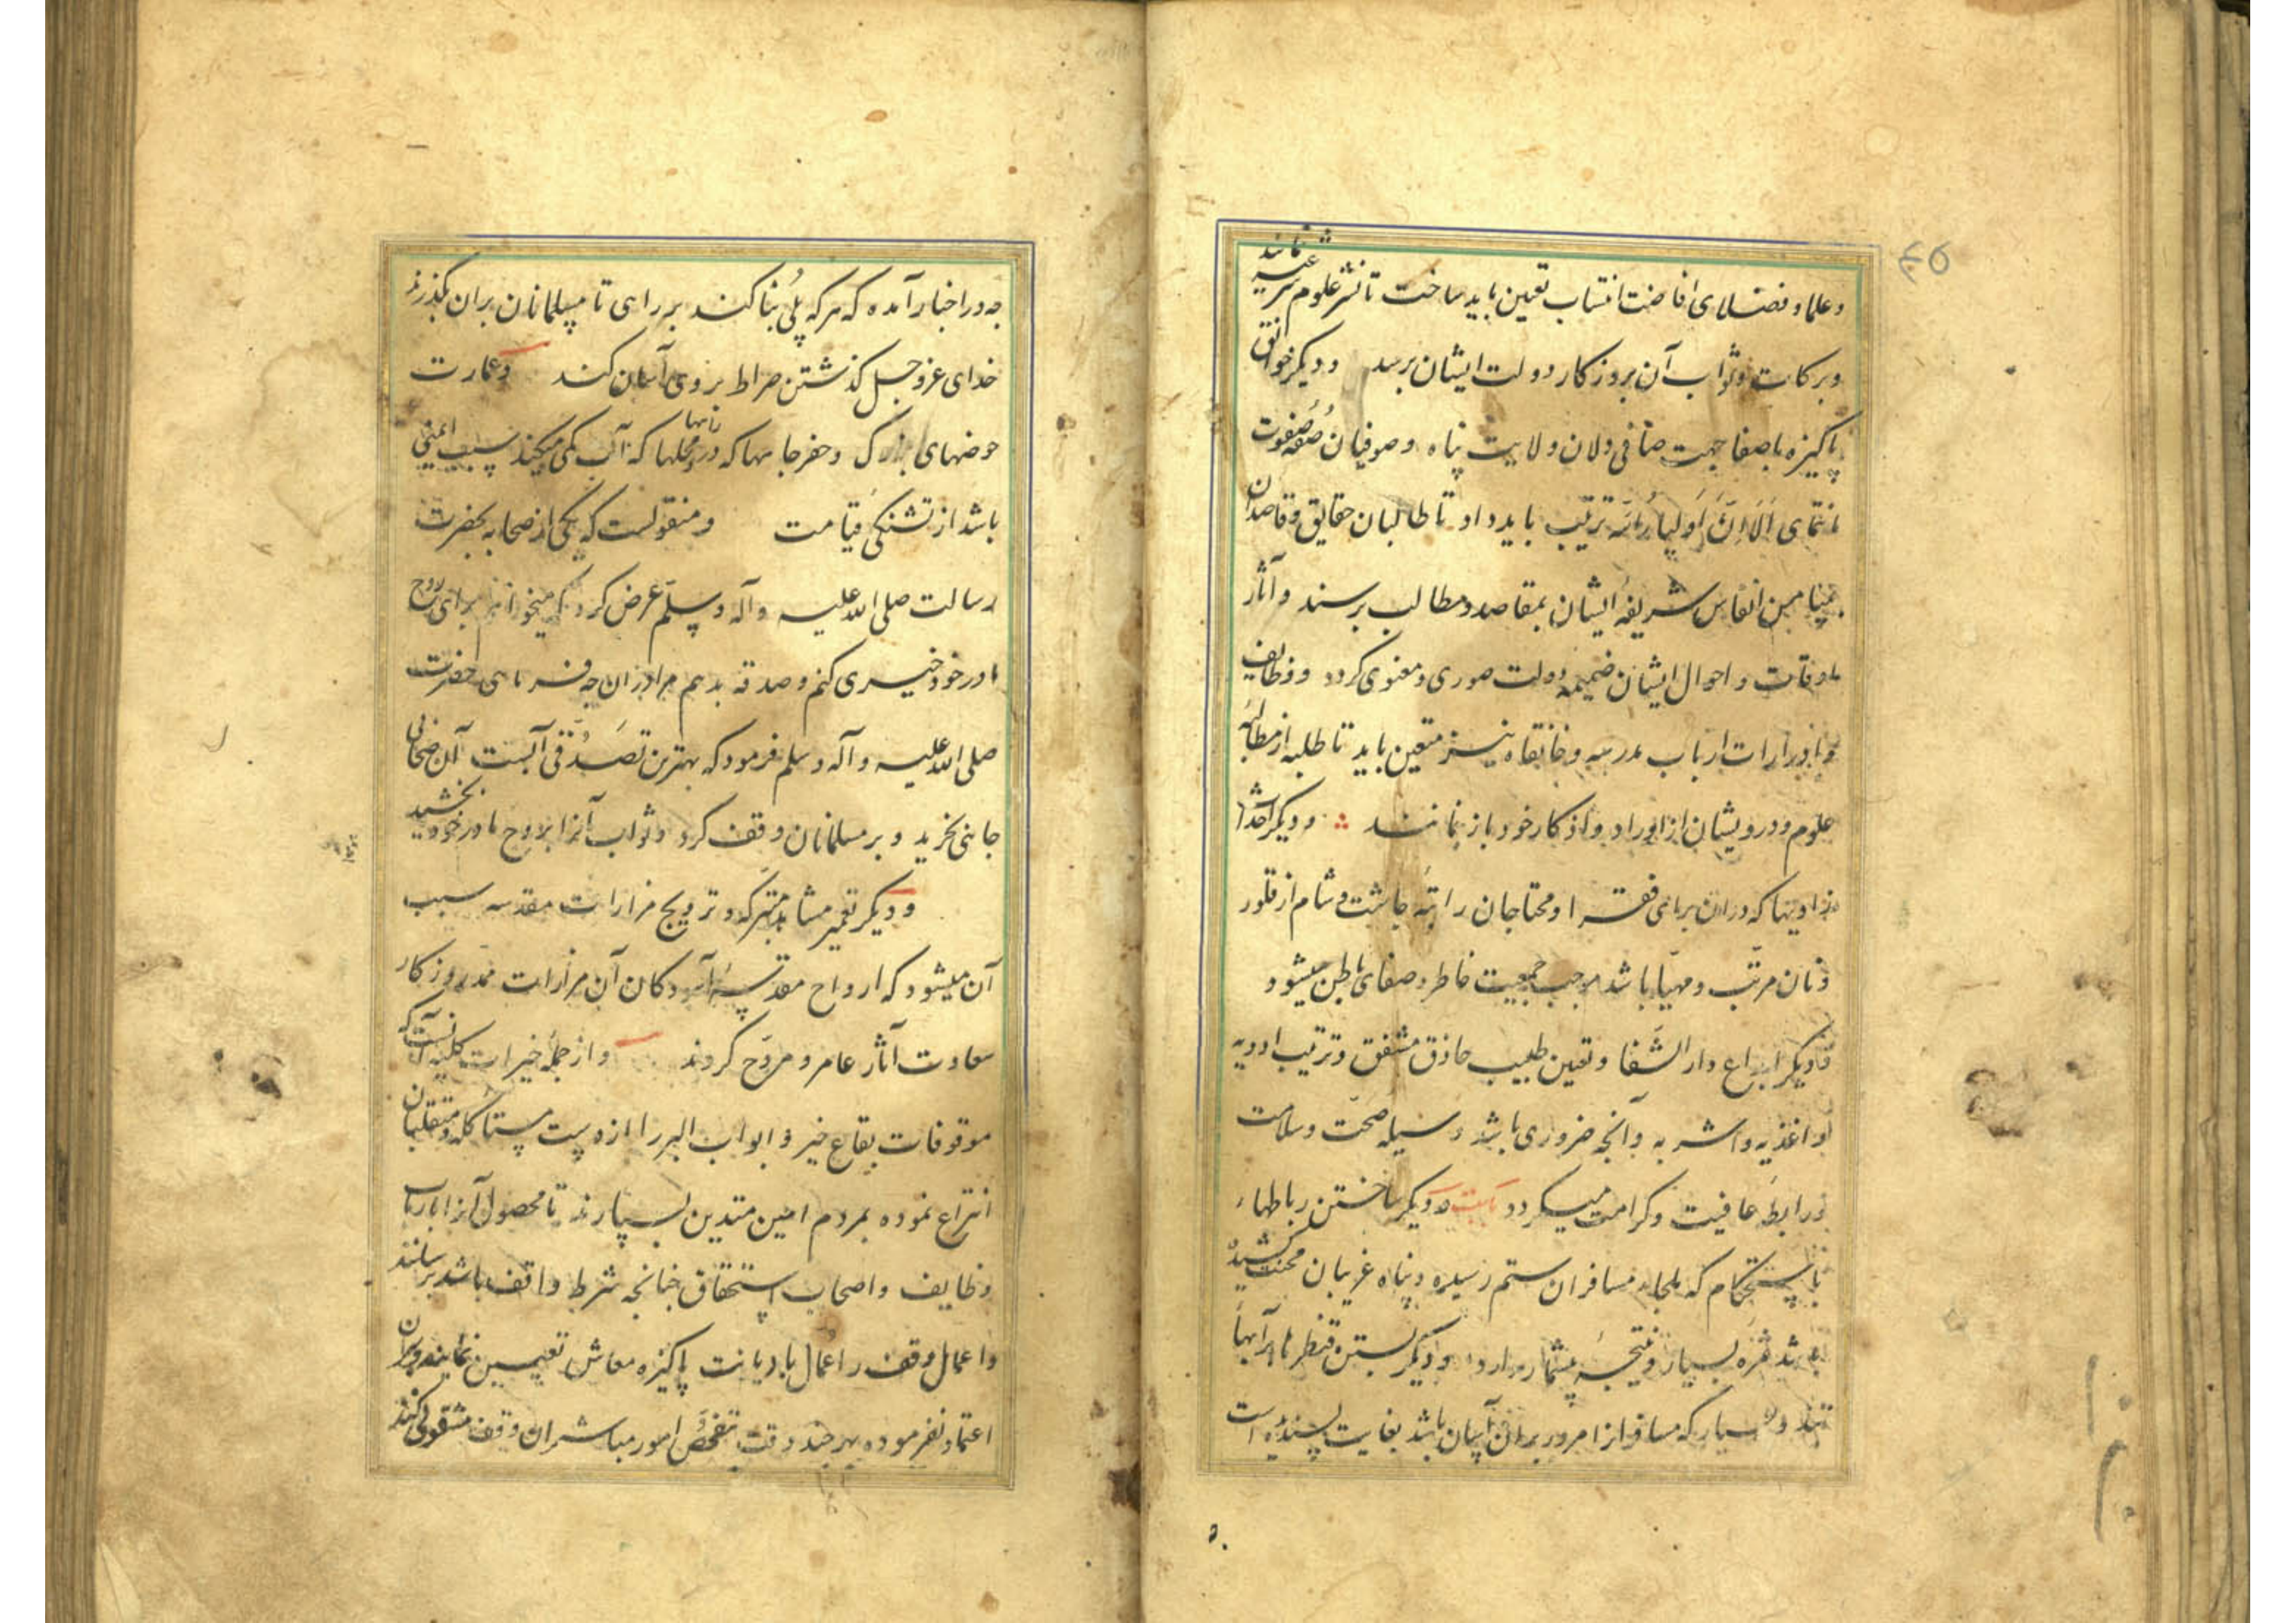 ۶۵
وعلما وفضلای افاضت انتساب تعیین باید ساخت تا نشر علوم شرعیه نمایند
وبرکات وثواب آن بروزکار دولت ایشان برسد ودیکر خوانق
پاکیزه باصفا جهت صافی دلان ولایت پناه وصوفیان صُفّه صفوت
انتمای اَلَا اِنَّ اَولیاءُ الله ترتیب باید داد تا طالبان حقایق وقاصدان
بمیامن انفاس شریفهٔ ایشان بمقاصد ومطالب برسند وآثار
اوقات واحوال ایشان ضمیمه دولت صوری ومعنوی کردد ووظایف
وادرارات ارباب مدرسه وخانقاه نیز متعین باید تا طلبه از مطالعهٔ
علوم ودرویشان از اوراد واذکار خود باز نمانند ودیکر احداث
زاویها که دران برای فقرا ومحتاجان راتبهٔ چاشت وشام از قلور
ونان مرتّب ومهیّا باشد موجب جمعیت خاطر وصفای باطن میشود
ودیکر ابداع دار الشّفا وتعیین طبیب حاذق مشفق وترتیب ادویه
واغذیه واشربه وآنچه ضروری باشد وسیله صحّت وسلامت
ورابطهٔ عافیت وکرامت میکردد ودیکر ساختن رباطهاء
با استحکام که ملجاء مسافران ستم رسیده وپناه غریبان محنت کشیده
باشد ثمرهٔ بسیار ونتیجهٔ بیشمار دارد ودیکر بستن قنطرها بر آبهاء
تند وبسیار که مسافر از امرور بران آسان باشد بغایت پسندیده است
چه در اخبار آمده که هرکه پُلی بُنا کند بر راهی تا مسلمانان بران بکذرند
خدای عزوجل کذشتن صراط بروی آسان کند وعمارت
حوضهای بزرک وحفر چاهها که در راهها ومحلها که آب کمی میکند سبب ایمنی
باشد از تشنکی قیامت ومنقولست که یکی از صحابه بحضرت
رسالت صلی الله علیه وآله وسلّم عرض کرد که میخواهم برای روح
مادر خود خیری کنم وصدقه بدهم مرا دران چه فرمایی حضرت
صلی الله علیه وآله وسلم فرمود که بهترین تصدّقی آبست آن صحابی
چاهی بخرید وبر مسلمانان وقف کرد وثواب آنرا بروح مادر خود بخشید
ودیکر تعمیر مشاهد متبرکه وترویج مزارات مقدسه سبب
آن میشود که ارواح مقدسهٔ آسودکان آن مزارات ممد روزکار
سعادت آثار عامر ومروّج کردند وازجملهٔ خیرات کلیه آنست که
موقوفات بقاع خیر وابواب البر را از دست مستأکله ومتقلبان
انتزاع نموده بمردم امین متدین بسپارند تا محصول آنرا بارباب
وظایف واصحاب استحقاق چنانچه شرط واقف باشد برسانند
واعمال وقف را عُمّال بادیانت پاکیزه معاش تعیین نمایند وبران
اعتماد نفرموده بهر چند وقت تفحّص امور مباشران وقف مشغولی کنند